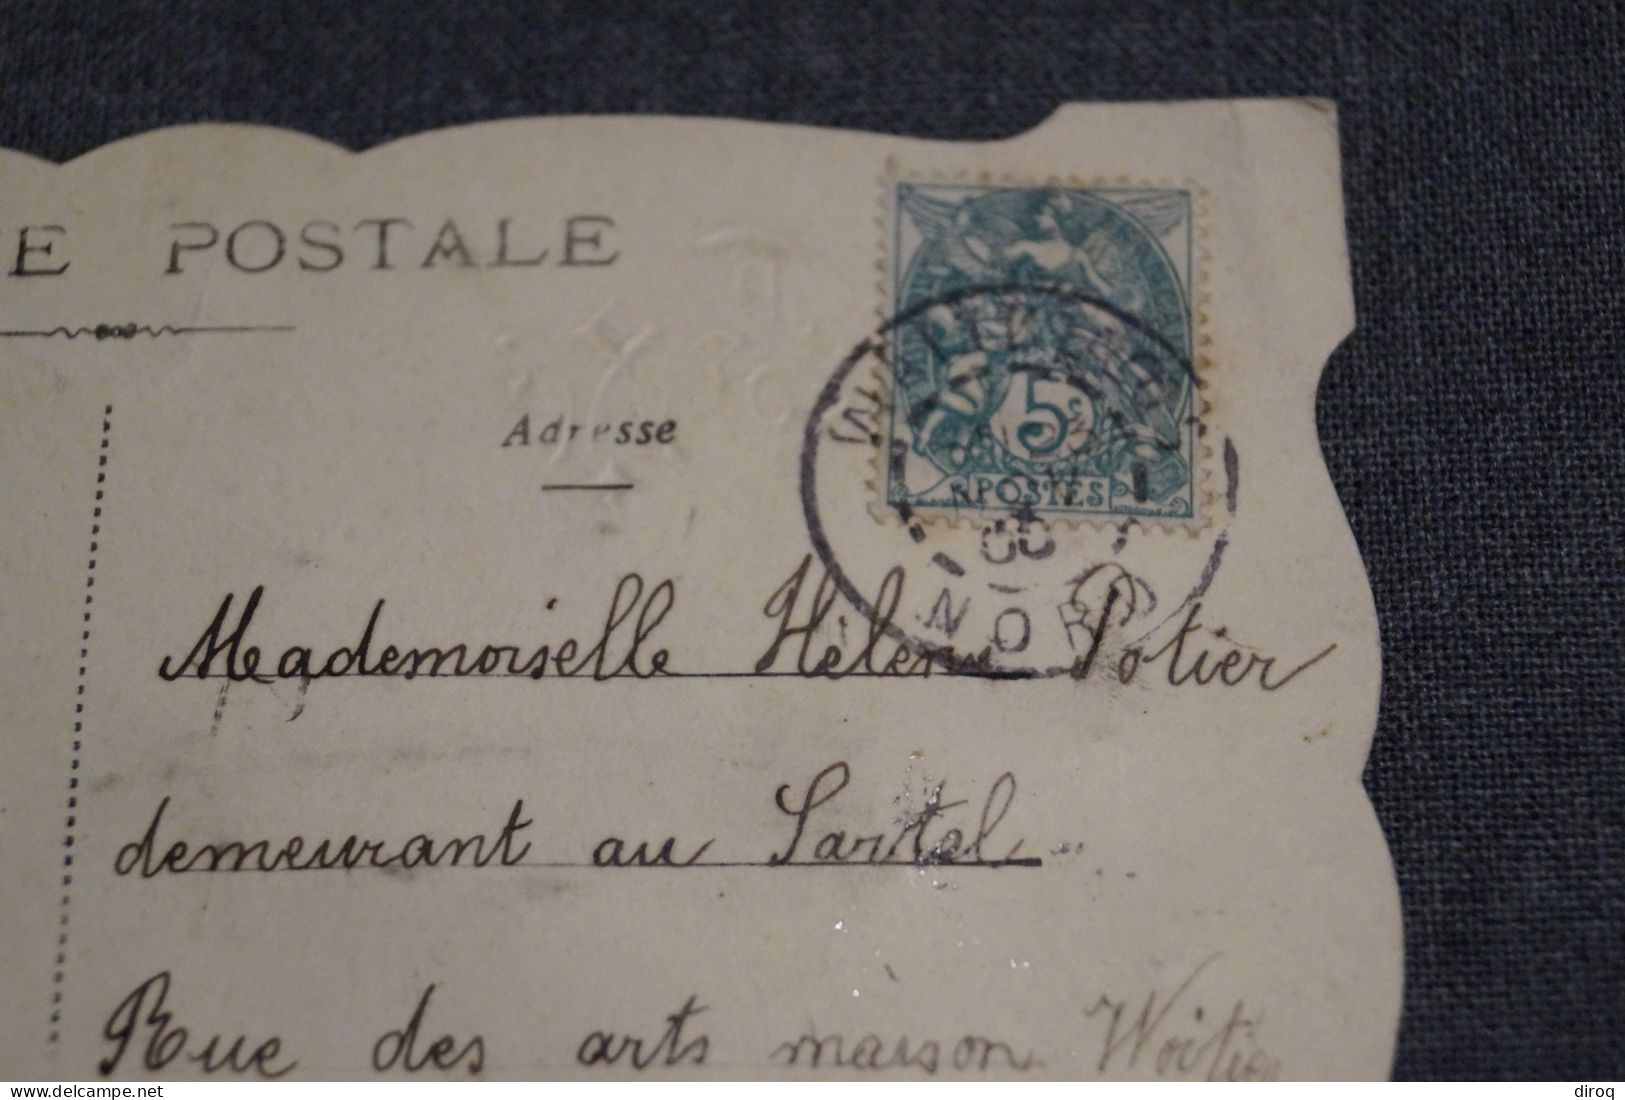 E POSTALE
Adresse
5c
POSTES
NORD
Mademoiselle Hélène Potier
demeurant au Sartel
Rue des arts maison Woitier
diroq